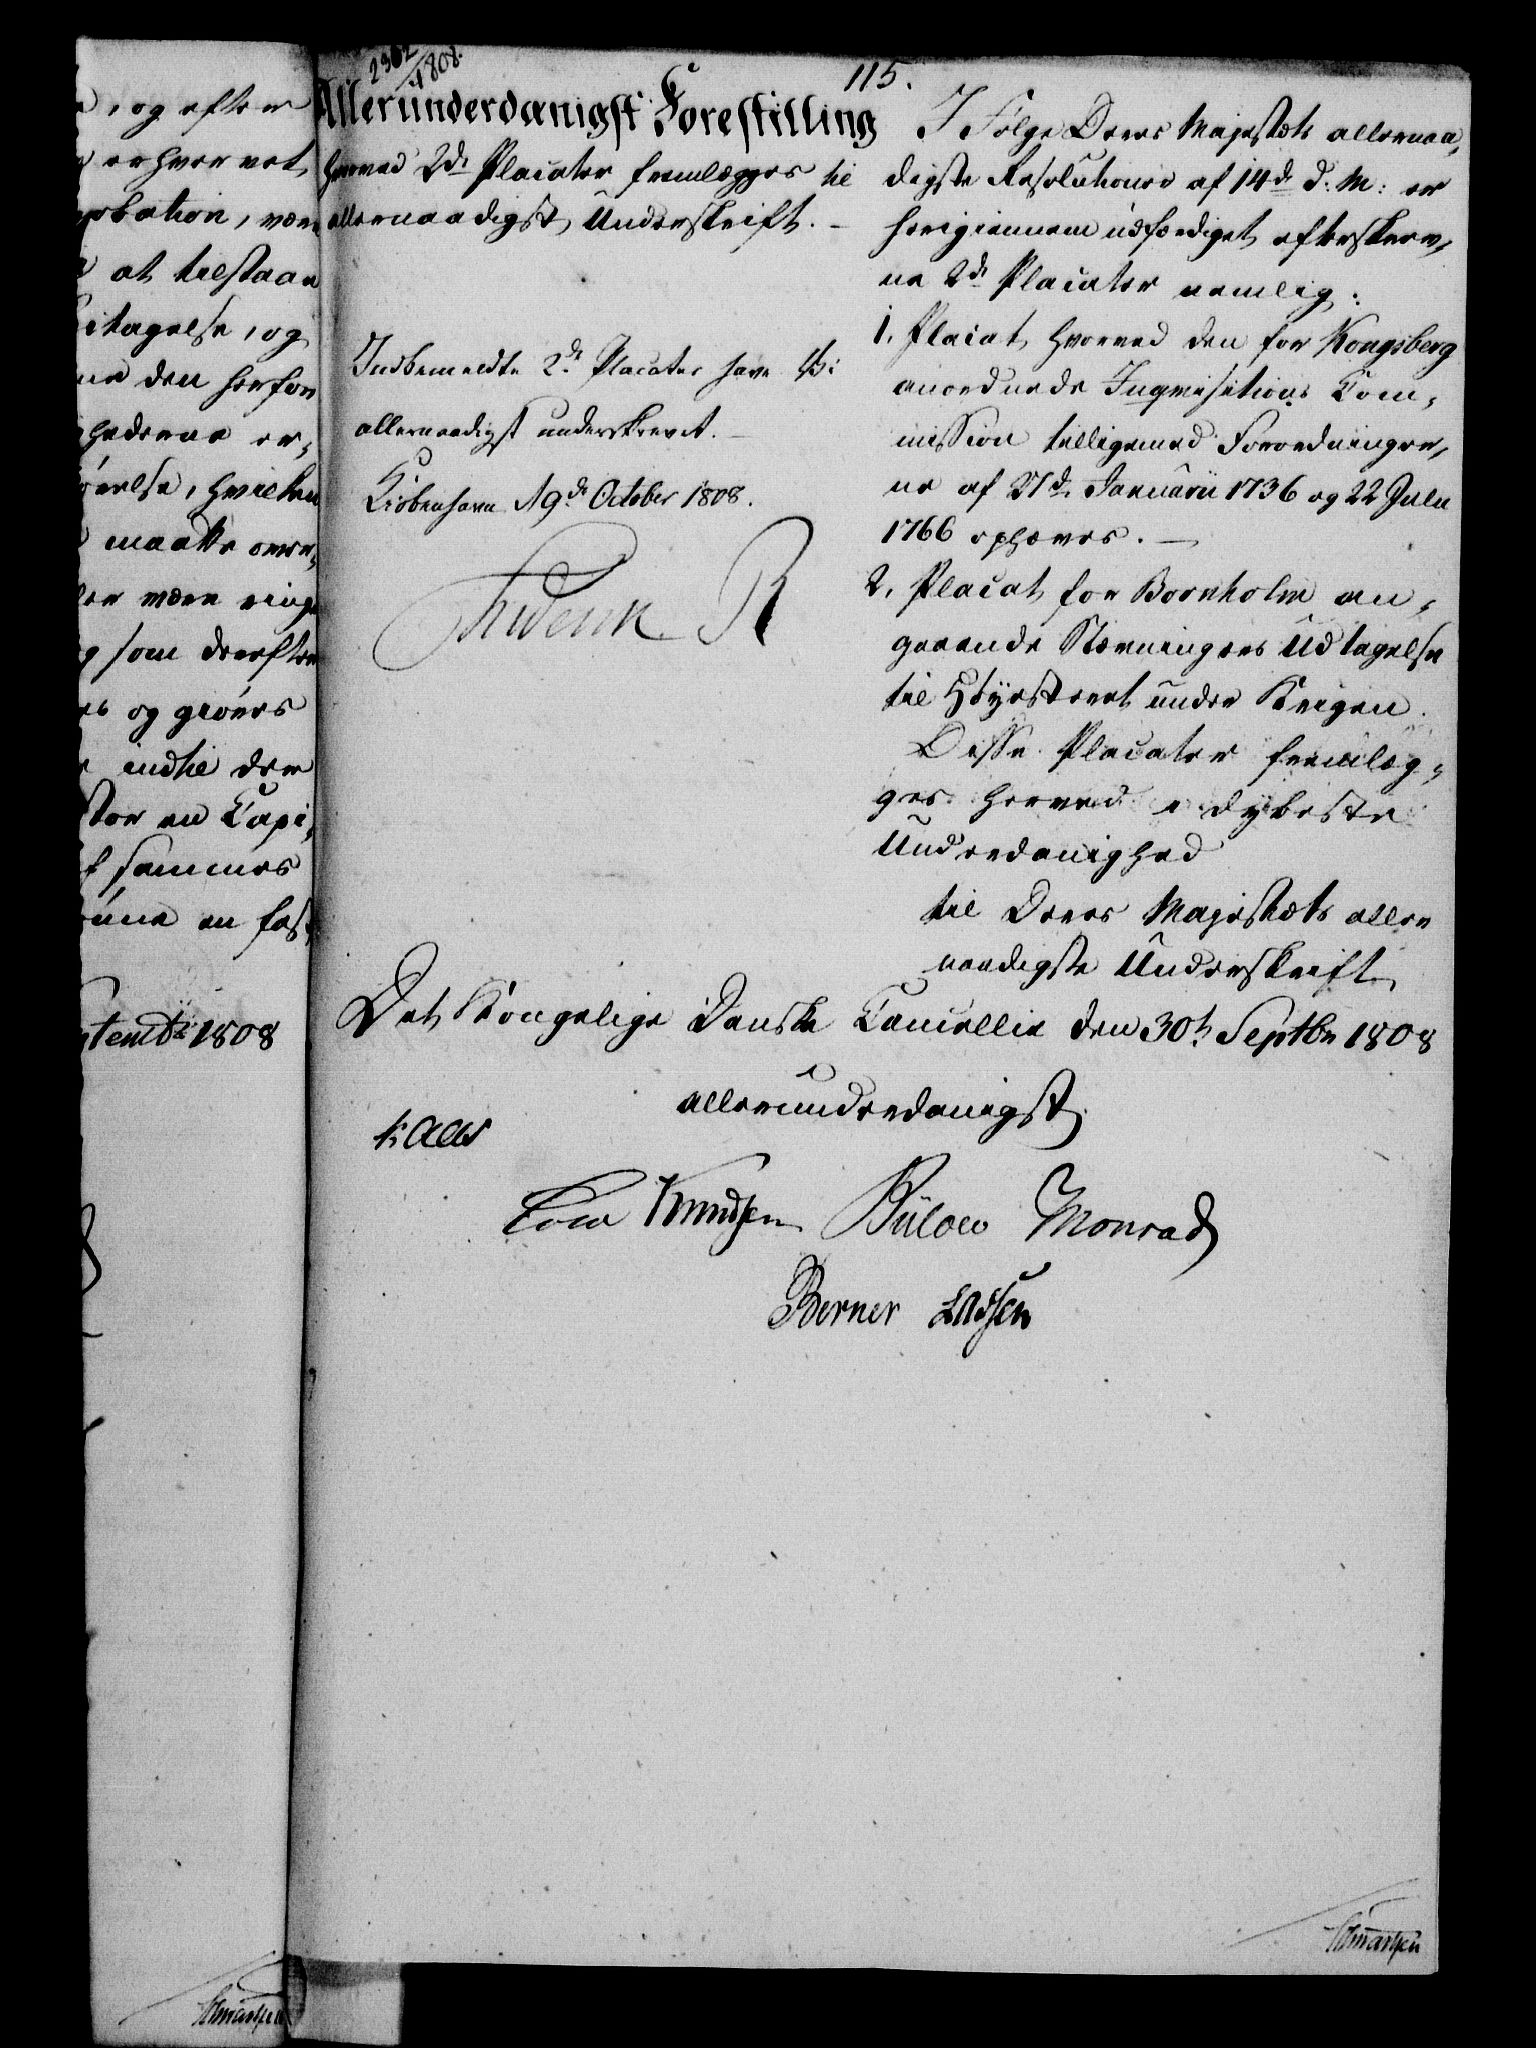 , og efter
erhvervet
probation, være
at tilstaae
itagelse, og
den herfor
hederne er-
øvelse, hvilken
maatte over-
ler være ringe
g som derefter
es og giøres
indtil der
stor en Capi-
f sammes
en fast
ptembr 1808
2362/1808.
115.
Allerunderdanigst Forestilling
hvorved 2de Placater fremlægges til
allernaadigst Underskrift. —
Indbemeldte 2de Placater have Vi
allernaadigst underskrevet. —
Kiøbenhavn 19de October 1808.
Friderik R
I Følge Deres Majestæts allernaa-
digste Resolutioner af 14de d: M: er
herigiennem udfærdiget efterskrev-
ne 2de Placater nemlig:
1. Placat hvorved den for Kongsberg
anordnede Inqvisitions Com-
mission tilligemed Forordninger-
ne af 27de Januarii 1736 og 22 Julii
1766 ophæves. —
2. Placat for Bornholm an-
gaaende Stævningers Udtagelse
til Høyesteret under Krigen.
Disse Placater fremlæg-
ges herved i dybeste
Underdanighed
til Deres Majestæts aller
naadigste Underskrift
Det Kongelige Danske Cancellie den 30t Septbr 1808
allerunderdanigst
Kaas
Cold Knudsen Bülow Monrad
Berner Lassen